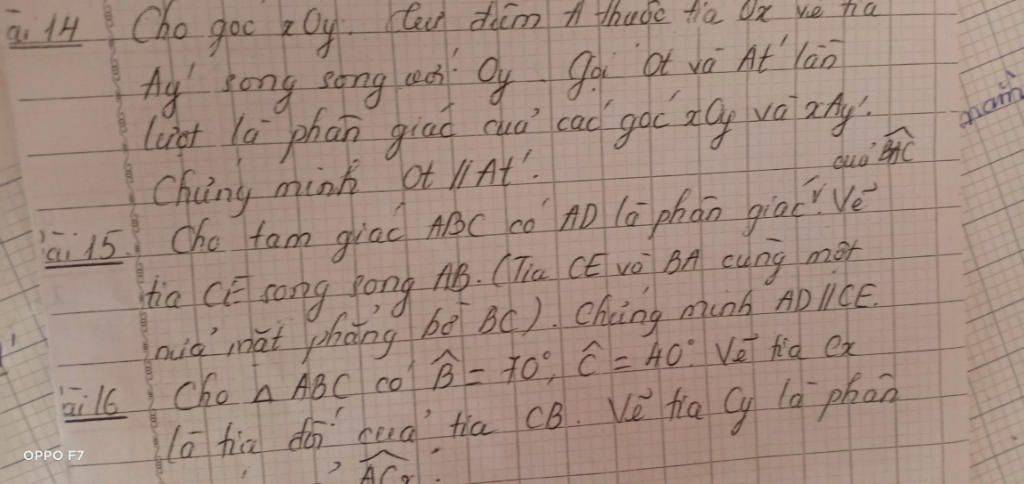 ài 14 Cho góc xOy. điểm A thuộc tia Ox vẽ tia
Ay' song song với Oy. Gọi Ot và At' lần
lượt là phân giác của các góc xOy và xAy'.
Chứng minh Ot // At'.
của BAC
ài 15. Cho tam giác ABC có AD là phân giác. Vẽ
tia CE song song AB. (Tia CE và BA cùng một
nửa mặt phẳng bờ BC). Chứng minh AD // CE.
ài 16 Cho Δ ABC có B̂ = 70°, Ĉ = 40°. Vẽ tia Cx
là tia đối của tia CB. Vẽ tia Cy là phân
ACx.
OPPO F7